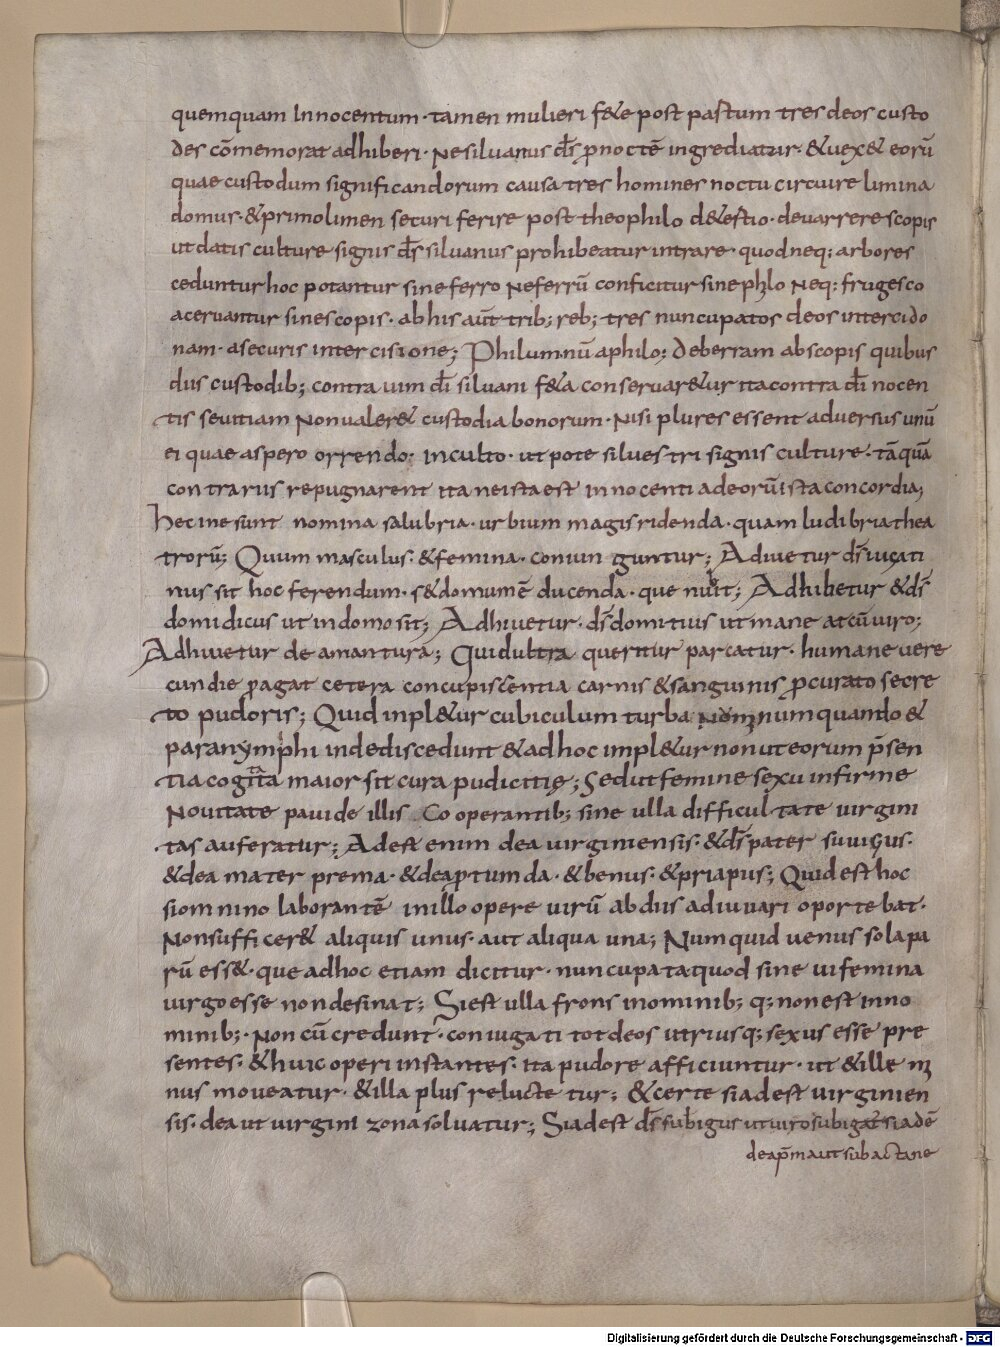 quemquam Innocentum· tamen mulieri f&ę post pastum tres deos custo
des cōmemorat adhiberi· Ne siluanus d̄s p nocte̅ ingrediatur· &uex& eorū
quae custodum significandorum causa tres homines noctu circuire limina
domus· &primo limen securi ferire post theophilo d&estio· deuarrere scopis
ut datis culture signis d̄s siluanus prohibeatur intrare· quod neq; arbores
ceduntur hoc potantur sine ferro Ne ferrū conficitur sine philo Neq: fruges co
aceruantur sine scopis· ab his aūt trib; reb; tres nuncupatos deos intercido
nam· asecuris intercisione; Philumnū aphilo; deberram abscopis quibus
diis custodib; contra uim d̄i siluani f&a conseruar&ur ita contra d̄i nocen
tis seuitiam Non ualer& custodia bonorum· Nisi plures essent aduersus unū
ei quae aspero orrendo· inculto· ut pote siluestri signis culture· tāquā
contrarius repugnarent ita ne ista est innocenti adeorū ista concordia;
Hecine sunt nomina salubria· urbium magis ridenda· quam ludibria thea
trorū; Quum masculus· &femina· coniunguntur; Adiuetur d̄s iugati
nus sit hoc ferendum· s&domume̅ ducenda· que nubit; Adhibetur &d̄s
domidicus ut in domo sit; Adhiuetur· d̄s domitius ut maneat cū uiro;
Adhiuetur de amantura; Quid ultra queritur parcatur· humane uere
cundie p̄agat cetera concupiscentia carnis &sanguinis p̄curato secre
to pudoris; Quid inpl&ur cubiculum turba Nominum quando &
paranymphi inde discedunt &adhoc impl&ur non ut eorum p̄sen
tia cogitata maior sit cura pudicitię; Sed ut femine sexu infirme
Nouitate pauide illis Cooperantib; sine ulla difficultate uirgini
tas auferatur; Adest enim dea uirginiensis· &d̄s pater suuigus·
&dea mater prema· &dea ptumda· &benus· &priapus; Quid est hoc
si omnino laborante̅ in illo opere uirū ab diis adiuuari oportebat·
Non sufficer& aliquis unus· aut aliqua una; Numquid uenus sola pa
rū ess&· que adhoc etiam dicitur· nuncupata quod sine ui femina
uirgo esse non desinat; Si est ulla frons inominib; q; non est in no
minib;· Non cū credunt· coniugati tot deos utriusq; sexus esse pre
sentes· &huic operi instantes· ita pudore afficiuntur· ut &ille mi
nus moueatur· &illa plus reluctetur; &certe si adest uirginien
sis· dea ut uirgini zona soluatur; Si adest d̄s subigus ut uiro subigatur si adē
dea p̄ma ut subacta ne